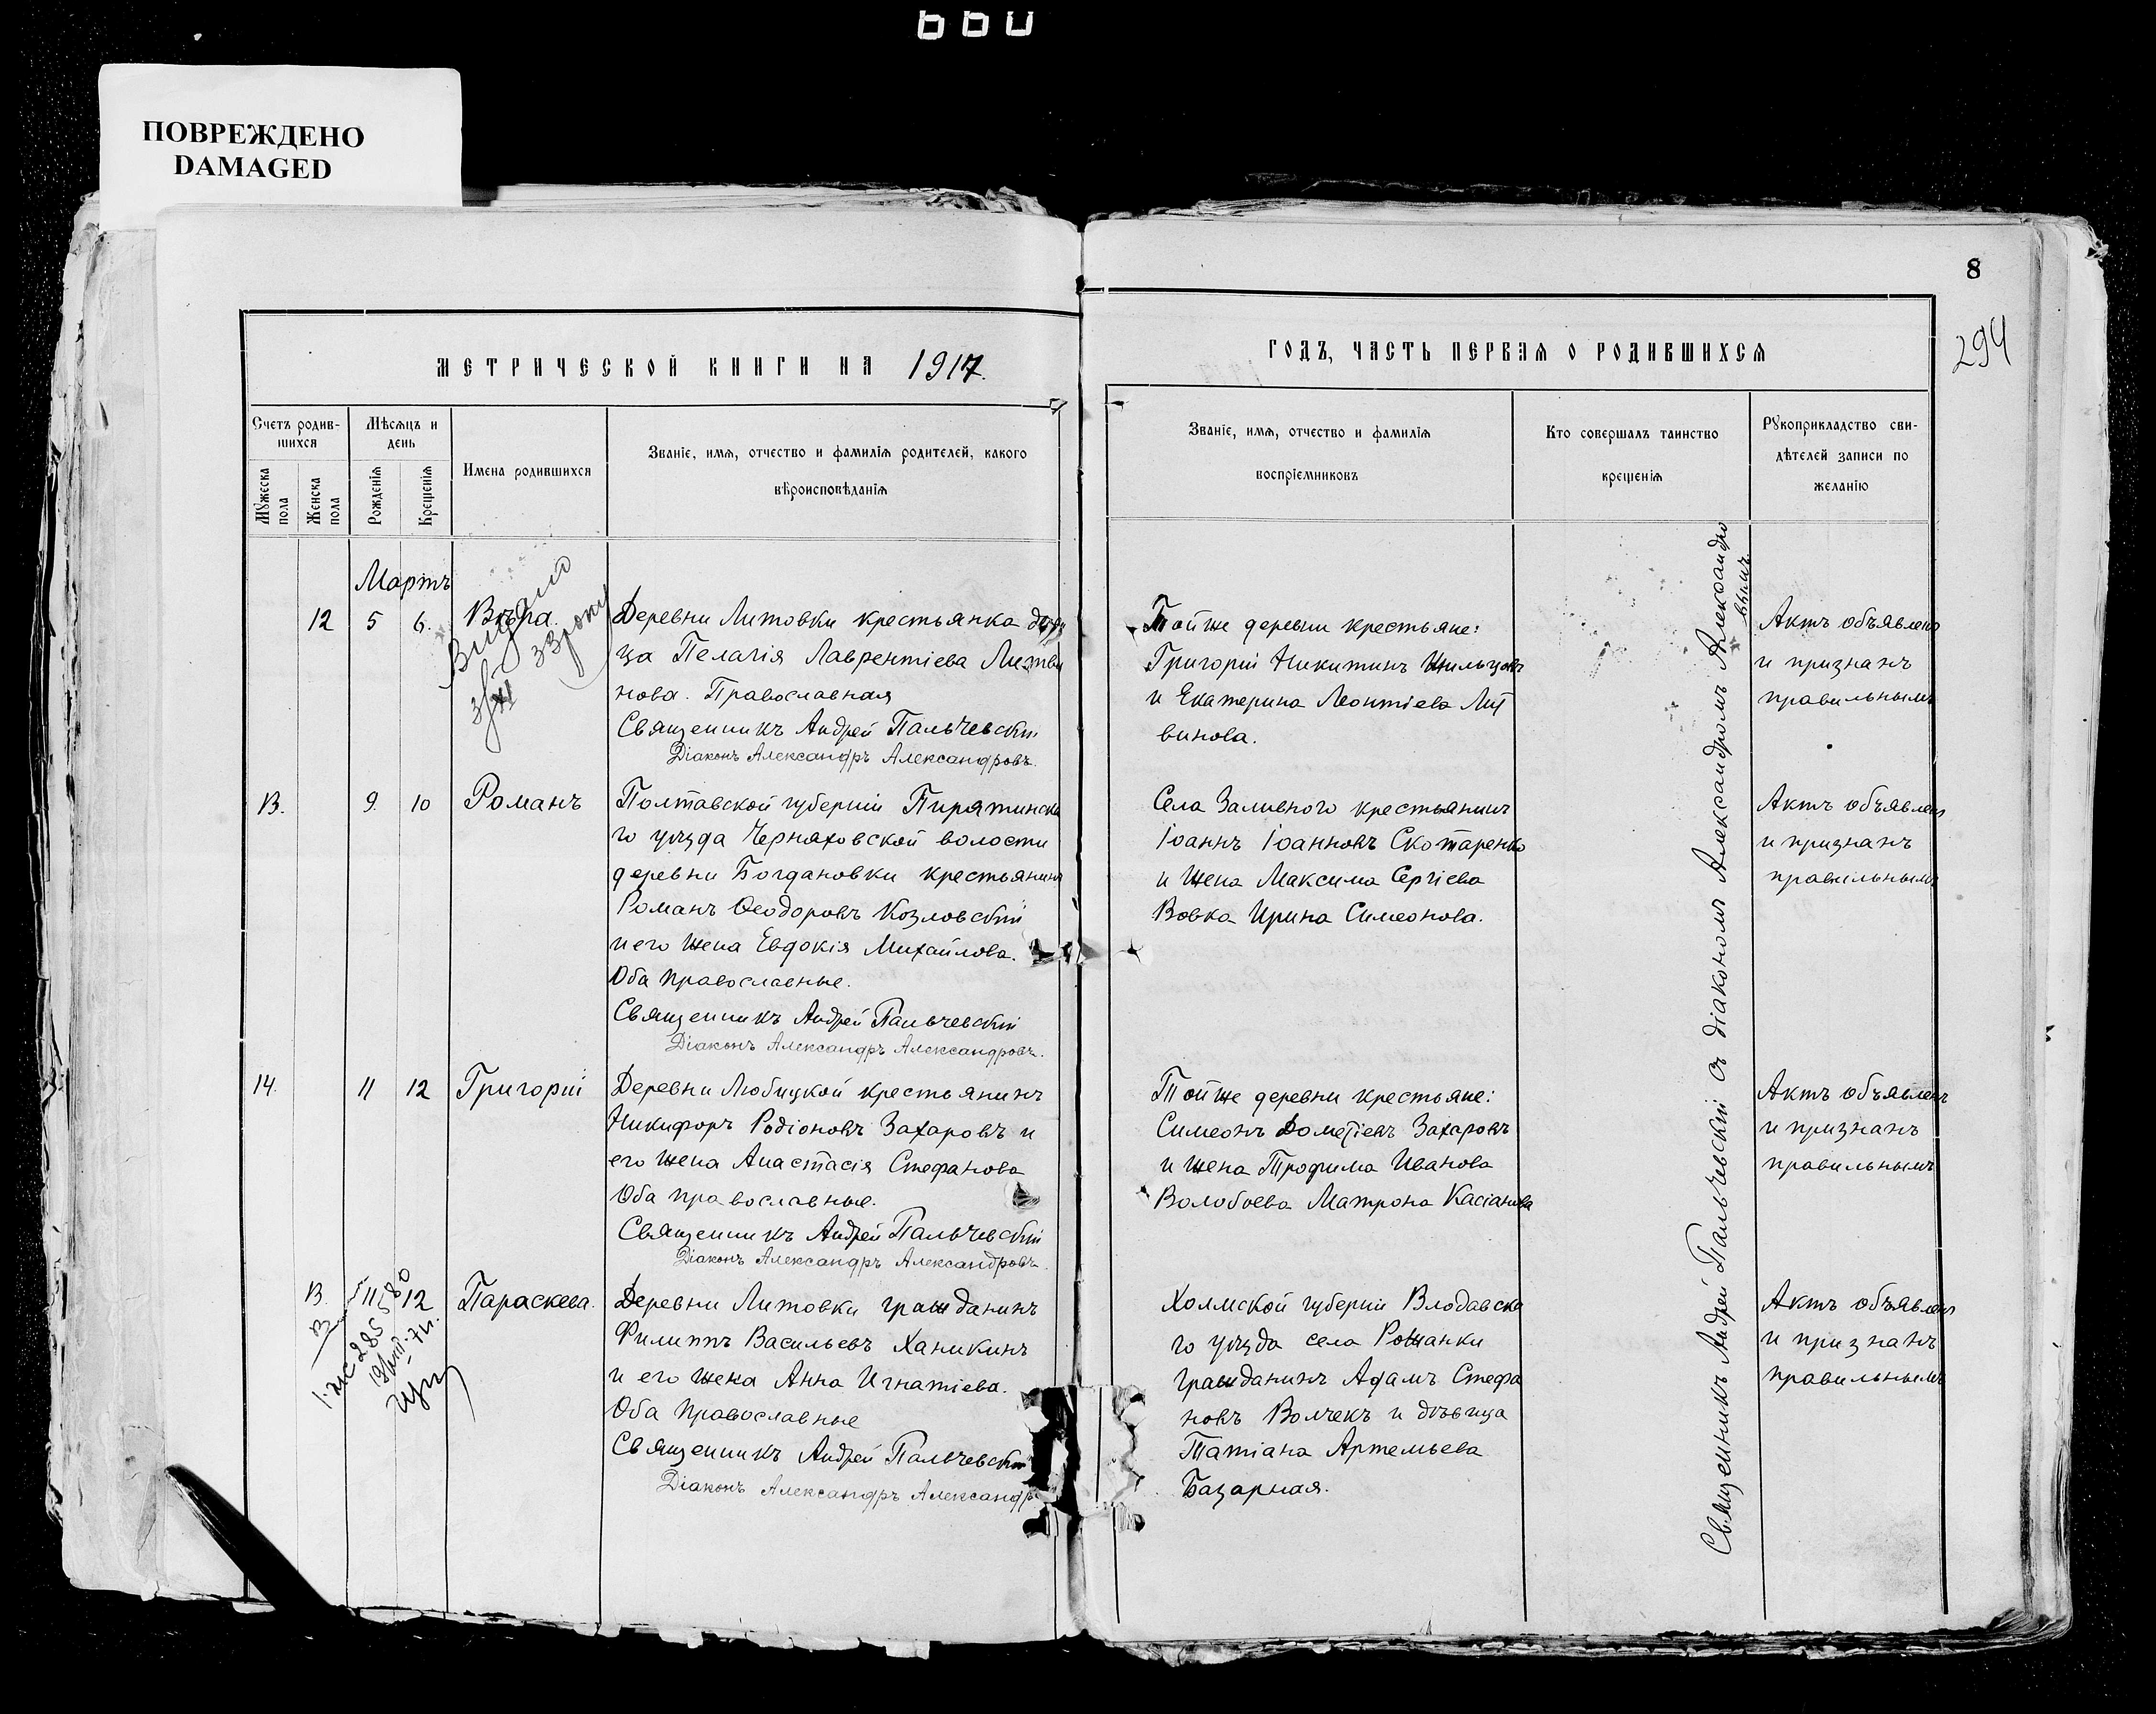 ПОВРЕЖДЕНО
DAMAGED
8
294
МЕТРИЧЕСКОЙ КНИГИ НА 1917.
Счетъ родив-
шихся
Мѣсяцъ и
день
Мужеска
пола
Женска
пола
Рожденія
Крещенія
Имена родившихся
Званіе, имя, отчество и фамилія родителей, какого
вѣроисповѣданія
Мартъ
12 5 6. Вѣра.
Деревни Литовки крестьянка дѣви
ца Пелагія Лаврентіева Литви
нова. Православная
Священникъ Андрей Пальчевскій
Діаконъ Александръ Александровъ.
13. 9. 10 Романъ
Полтавской губерніи Пирятинска
го уѣзда Черняховской волости
деревни Богдановки крестьянинъ
Романъ Ѳеодоровъ Козловскій
и его жена Евдокія Михайлова.
Оба православные.
Священникъ Андрей Пальчевскій
Діаконъ Александръ Александровъ.
14. 11 12 Григорій
Деревни Любицкой крестьянинъ
Никифоръ Родіоновъ Захаровъ и
его жена Анастасія Стефанова
Оба православные.
Священникъ Андрей Пальчевскій
Діаконъ Александръ Александровъ.
13. 11 12 Параскева.
Деревни Литовки гражданинъ
Филиппъ Васильевъ Ханикинъ
и его жена Анна Игнатіева.
Оба православные
Священникъ Андрей Пальчевскій
Діаконъ Александръ Александръ
ГОДЪ, ЧАСТЬ ПЕРВАЯ О РОДИВШИХСЯ
Званіе, имя, отчество и фамилія
воспріемниковъ
Кто совершалъ таинство
крещенія
Рукоприкладство сви-
дѣтелей записи по
желанію
Тойже деревни крестьяне:
Григорій Никитинъ
и Екатерина Леонтіева Лит
винова.
Села Заливного крестьянинъ
Іоаннъ Іоанновъ Скотаренко
и жена Максима Сергіева
Вовка Ирина Симеонова.
Тойже деревни крестьяне:
Симеонъ Дометіевъ Захаровъ
и жена Трофима Иванова
Волобоева Матрона Касіанова
Холмской губерніи Влодавска
го уѣзда села Рожанки
гражданинъ Адамъ Стефа
новъ Волчекъ и дѣвица
Татіана Артемьева
Базарная.
Священникъ Андрей Пальчевскій съ діакономъ Александромъ Александро
вымъ
Актъ объявленъ
и признанъ
правильнымъ
Актъ объявленъ
и признанъ
правильнымъ
Актъ объявленъ
и признанъ
правильнымъ
Актъ объявленъ
и признанъ
правильнымъ